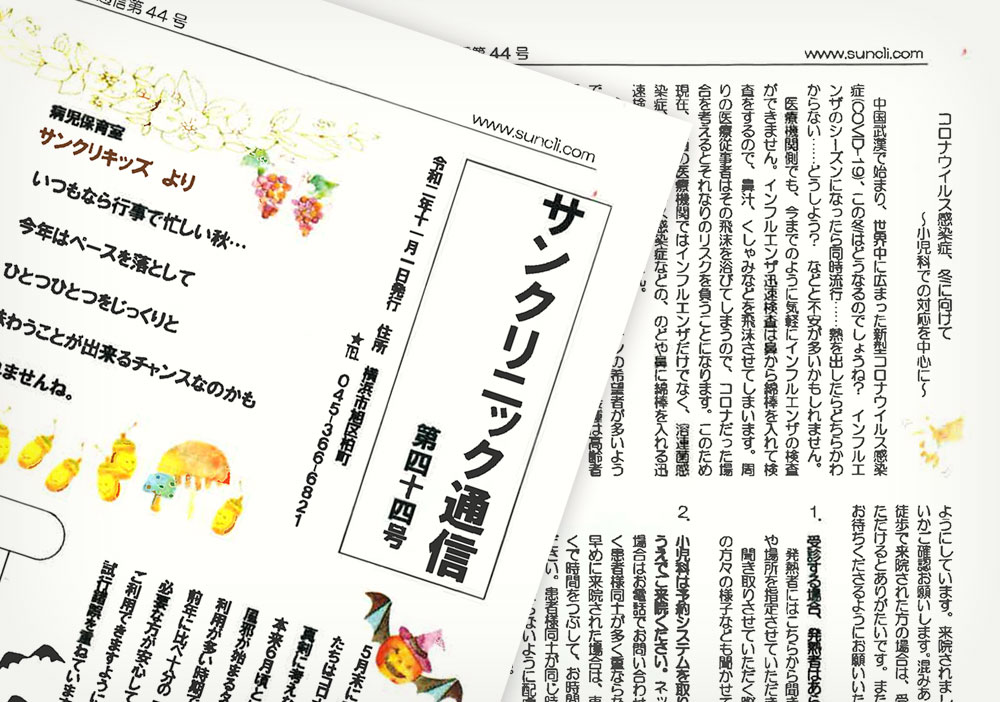 通信第44号
www.suncli.com
サンクリニック通信
第四十四号
令和二年十一月一日発行 住所 横浜市旭区柏町
★℡ 045-366-6821
病児保育室
サンクリキッズ より
いつもなら行事で忙しい秋…
今年はペースを落として
ひとつひとつをじっくりと
味わうことが出来るチャンスなのかも
ませんね。
5月末に
たちはコロ
真剣に考え
本来6月頃と
風邪が始まるタ
利用が多い時期で
前年に比べ十分の
必要な方が安心して
ご利用できますように
試行錯誤を重ねていま
第44号
www.suncli.com
コロナウイルス感染症、冬に向けて
～小児科での対応を中心に～
中国武漢で始まり、世界中に広まった新型コロナウイルス感染
症(COVID-19)、この冬はどうなるのでしょうね？ インフルエ
ンザのシーズンになったら同時流行……熱を出したらどちらかわ
からない……どうしよう？ などと不安が多いかもしれません。
医療機関側でも、今までのように気軽にインフルエンザの検査
ができません。インフルエンザ迅速検査は鼻から綿棒を入れて検
査をするので、鼻汁、くしゃみなどを飛沫させてしまいます。周
りの医療従事者はその飛沫を浴びてしまうので、コロナだった場
合を考えるとそれなりのリスクを負うことになります。このため
現在、
の医療機関ではインフルエンザだけでなく、溶連菌感
染症、
感染症などの、のどや鼻に綿棒を入れる迅
速検
の希望者が多いよう
は高齢者
ようにしています。来院されまし
いかご確認お願いします。混みあ
徒歩で来院された方の場合は、受
ただけるとありがたいです。また
お待ちくださるようにお願いいた
1. 受診する場合、発熱者はあら
発熱者にはこちらから聞き
や場所を指定させていただき
聞き取りさせていただく際
の方々の様子なども聞かせて
2. 小児科は予約システムを取り
うえでご来院ください。ネッ
場合はお電話でお問い合わせ
く患者様同士が多く重ならな
早めに来院された場合は、車
くで時間をつぶして、お時間
ださい。患者様同士が同じ時
らないように配慮